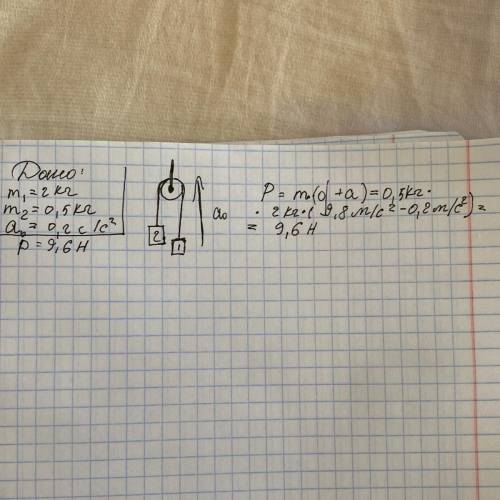 Дано:
m₁ = 2 кг
m₂ = 0,5 кг
a₀ = 0,2 с/с²
P = 9,6 Н
2
1
a₀
P = m(g + a) = 0,5 кг ·
· 2 кг · ( 9,8 м/с² - 0,2 м/с²) =
= 9,6 Н